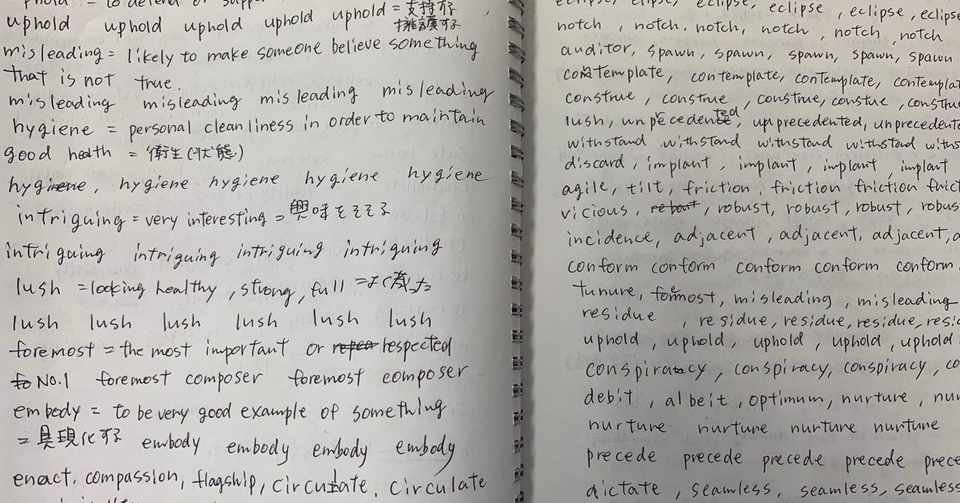 uphold = to defend or suppo
uphold uphold uphold uphold uphold = 支持する
擁護する
misleading = likely to make someone believe something
that is not true.
misleading misleading misleading misleading
hygiene = personal cleanliness in order to maintain
good health = 衛生(状態)
hygiene, hygiene hygiene hygiene hygiene
intriguing = very interesting = 興味をそそる
intriguing intriguing intriguing intriguing
lush = looking healthy, strong, full = よく茂った
lush lush lush lush lush lush
foremost = the most important or respected
No.1 foremost composer foremost composer
embody = to be very good example of something
= 具現化する embody embody embody embody
enact, compassion, flagship, circulate, circulate
eclipse, eclipse, eclipse, eclipse, eclipse, eclipse
notch, notch, notch, notch, notch, notch
auditor, spawn, spawn, spawn, spawn, spawn
contemplate, contemplate, contemplate, contemplat
construe, construe, construe, constue, construe
lush, unprecedented, unprecedented, unprecedente
withstand withstand withstand withstand withs
discard, implant, implant, implant, implant
agile, tilt, friction, friction friction frict
vicious, robust, robust, robust, robus
incidence, adjacent, adjacent, adjacent, a
conform conform conform conform conform
tunure, formost, misleading, misleading
residue, residue, residue, residue, resi
uphold, uphold, uphold, uphold, uphold
conspiracy, conspiracy, conspiracy, co
debit, albeit, optimum, nurture, nur
nurture nurture nurture nurture
precede precede precede precede prece
dictate, seamless, seamless, seamless